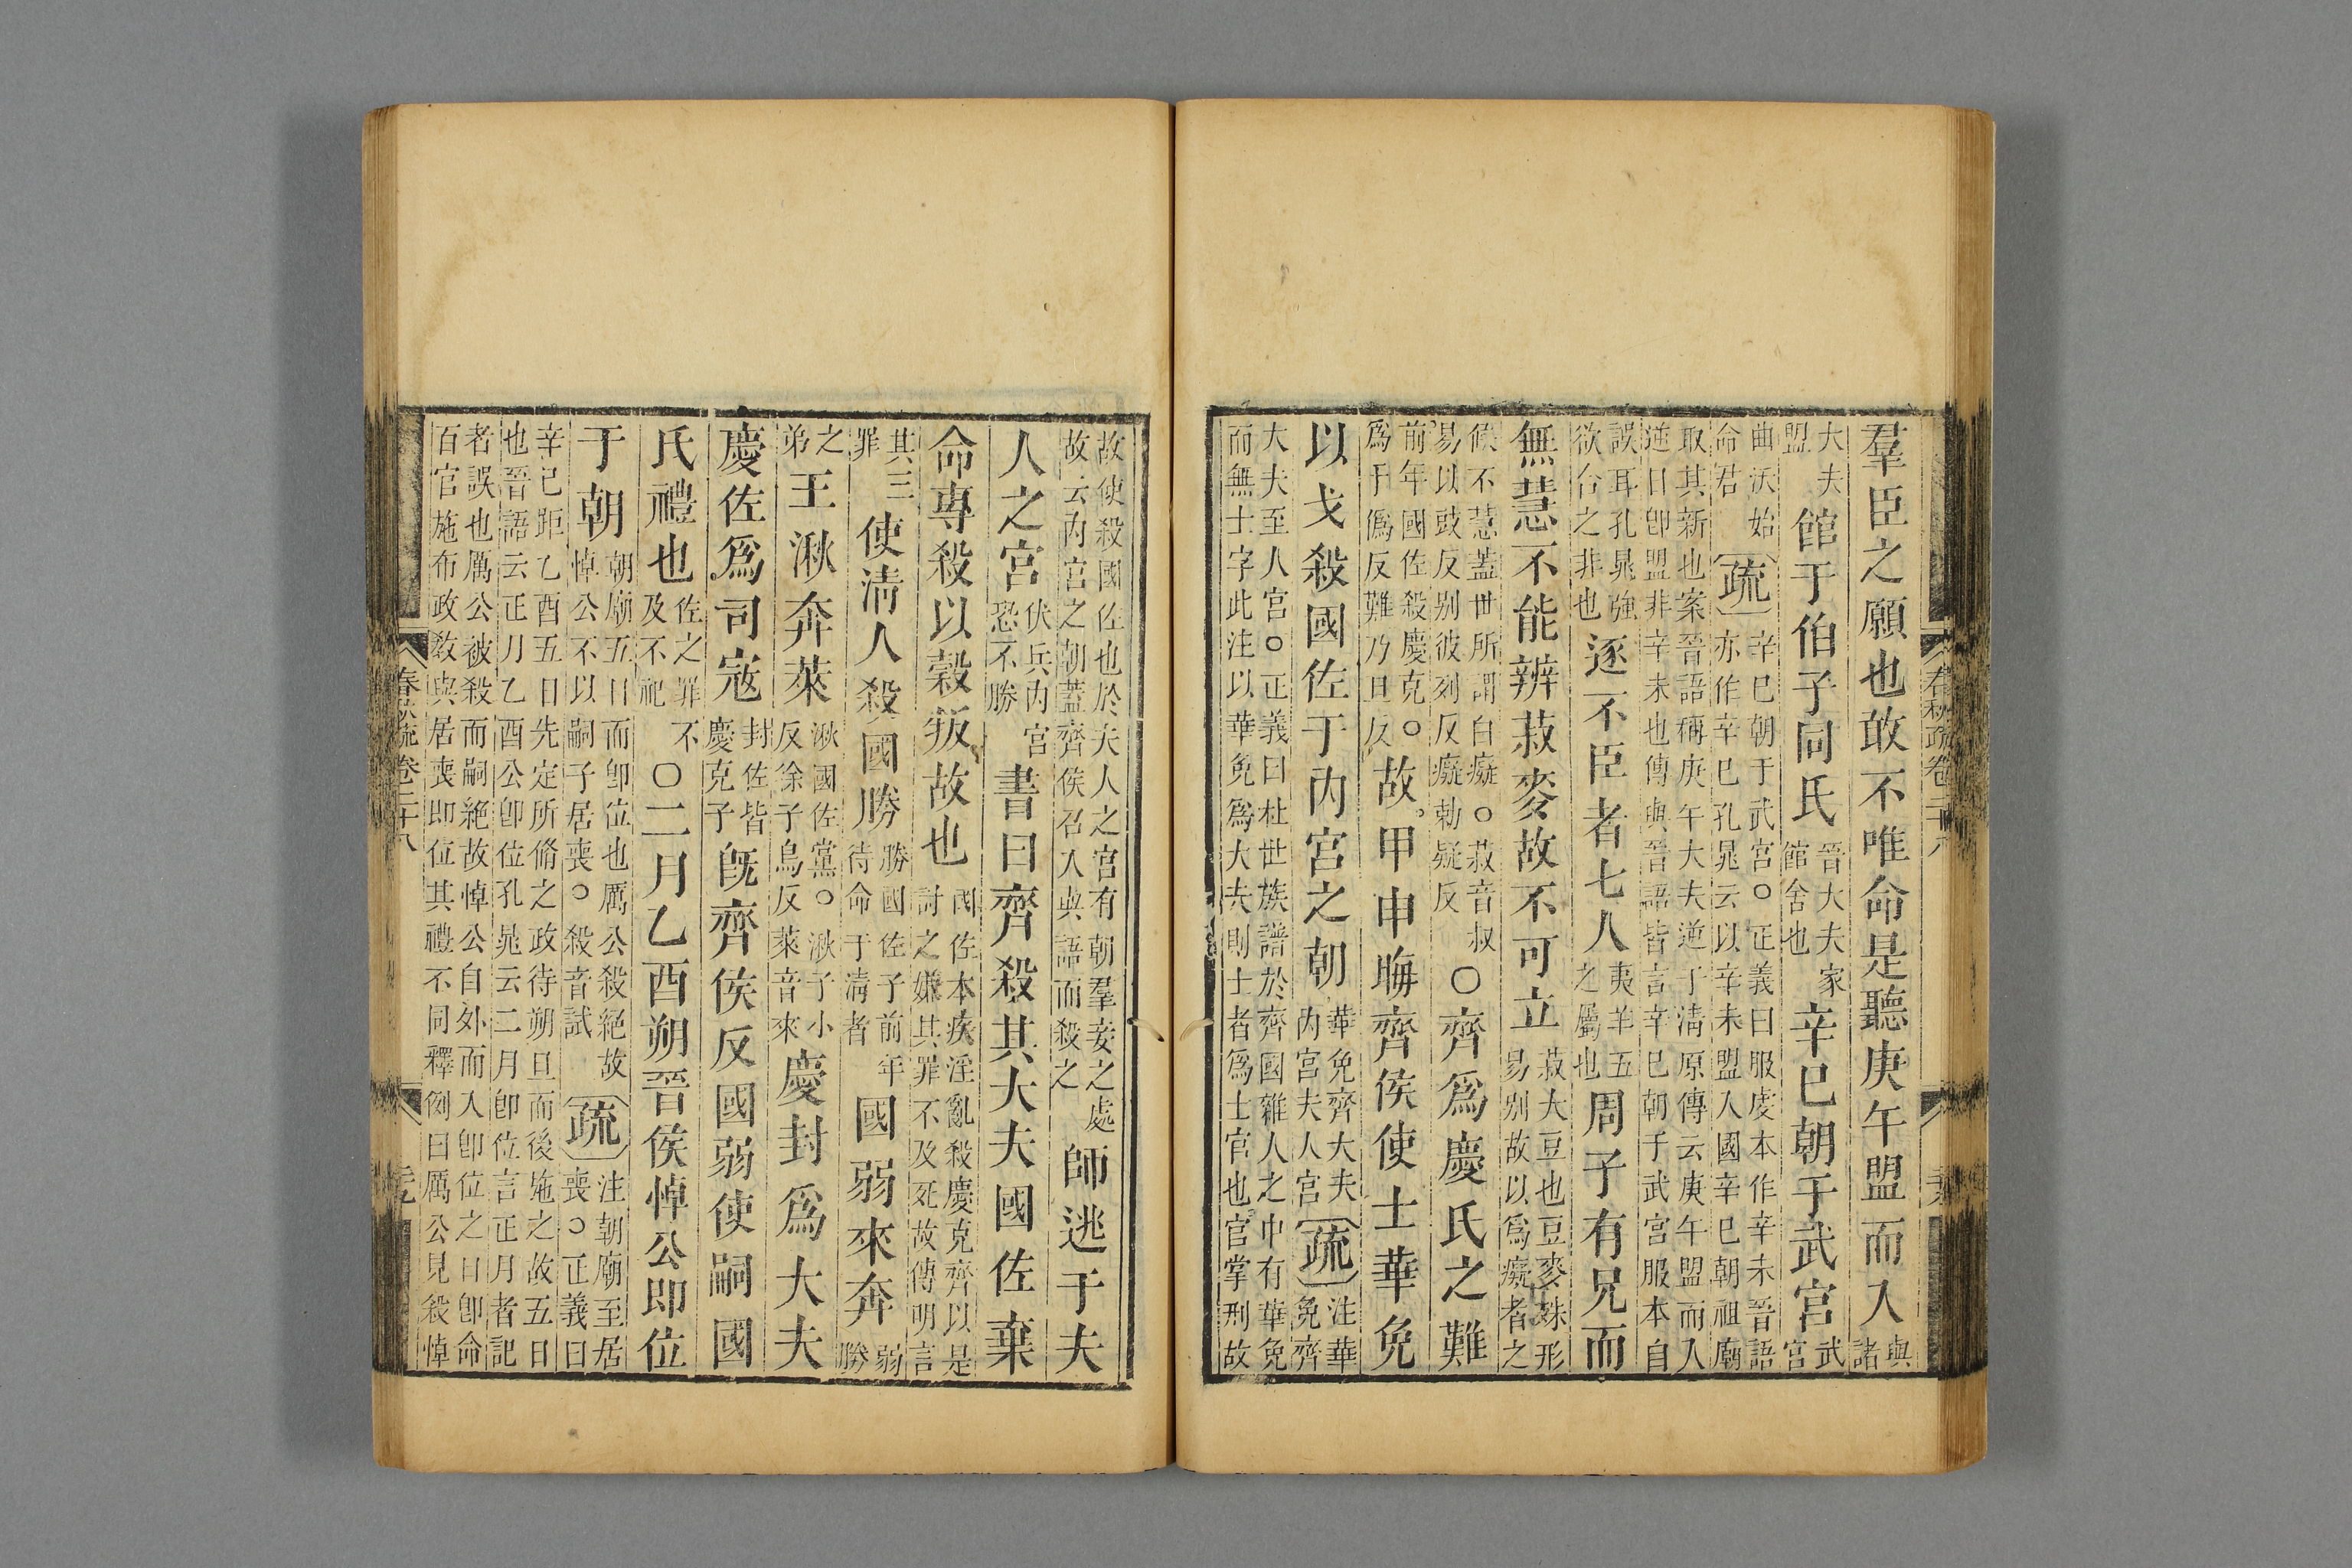 羣臣之願也敢不唯命是聽庚午盟而入與諸
大夫盟館于伯子同氏晉大夫家館舍也辛巳朝于武宮武宮
曲沃始命君疏辛巳朝于武宮○正義曰服虔本作辛未晉語亦作辛巳孔晁云以辛未盟入國辛巳朝祖廟
取其新也案晉語稱庚午大夫逆于淸原傳云庚午盟而入逆日卽盟非辛未也傳與晉語皆言辛巳朝于武宮服本自
誤耳孔晁強欲合之非也逐不臣者七人夷羊五之屬也周子有兄而
無慧不能辨菽麥故不可立菽大豆也豆麥殊形易别故以爲癡者之
候不慧蓋世所謂白癡○菽音叔易以豉反别彼列反癡勑疑反○齊爲慶氏之難
前年國佐殺慶克○爲于僞反難乃旦反故甲申晦齊侯使士華免
以戈殺國佐于內宮之朝華免齊大夫內宮夫人宮疏注華免齊
大夫至人宮○正義曰杜世族譜於齊國雜人之中有華免而無士字此注以華免爲大夫則士者爲士官也官掌刑故
故使殺國佐也於夫人之宮有朝羣妾之處故云內宮之朝蓋齊侯召入與語而殺之師逃于夫
人之宮伏兵內宮恐不勝書曰齊殺其大夫國佐棄
命專殺以穀叛故也國佐本疾淫亂殺慶克齊以是討之嫌其罪不及死故傳明言
其三罪使淸人殺國勝勝國佐子前年待命于淸者國弱來奔弱勝
之弟王湫奔萊湫國佐黨○湫子小反徐子鳥反萊音來慶封爲大夫
慶佐爲司寇封佐皆慶克子旣齊侯反國弱使嗣國
氏禮也佐之罪不及不祀○二月乙酉朔晉侯悼公即位
于朝朝廟五日而卽位也厲公殺絕故悼公不以嗣子居喪○殺音試疏注朝廟至居喪○正義曰
辛巳距乙酉五日先定所脩之政待朔旦而後施之故五日也晉語云正月乙酉公卽位孔晁云二月卽位言正月者記
者誤也厲公被殺而嗣絕故悼公自外而入卽位之日卽命百官施布政敎與居喪即位其禮不同釋例曰厲公見殺悼
春秋疏卷二十八
春秋疏卷二十八